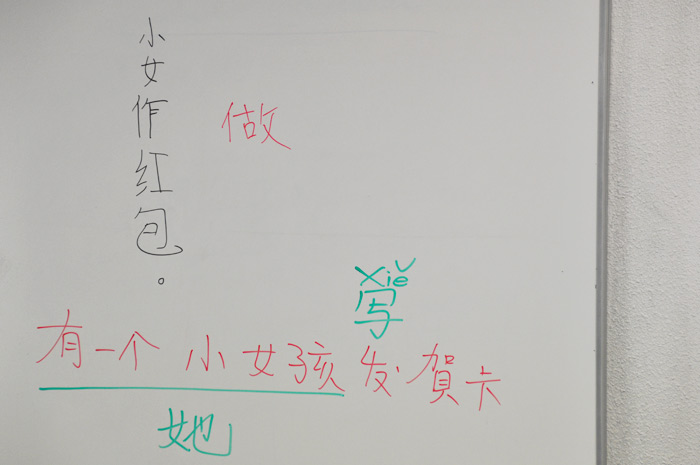 小女作红包。
做
xiě
写
有一个小女孩发贺卡
她